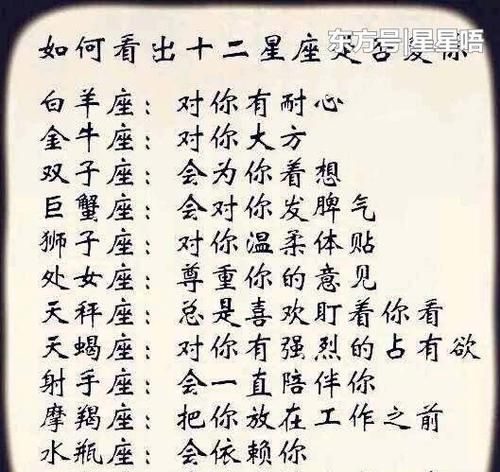 如何看出十二星座是否爱你
东方号|星星唔
白羊座：对你有耐心
金牛座：对你大方
双子座：会为你着想
巨蟹座：会对你发脾气
狮子座：对你温柔体贴
处女座：尊重你的意见
天秤座：总是喜欢盯着你看
天蝎座：对你有强烈的占有欲
射手座：会一直陪伴你
摩羯座：把你放在工作之前
水瓶座：会依赖你